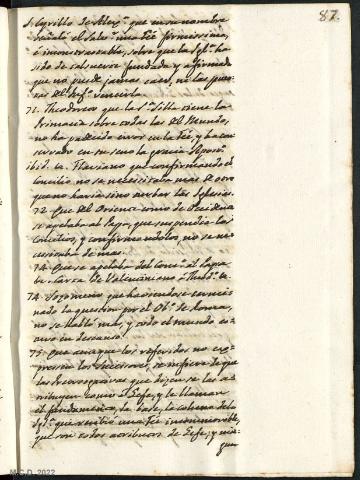 87.
S. Cyrillo de Alex.ª que en su nombre
señaló el Salv.r una Fé firmissima,
é incontrastable, sobre que la Igl.ª ha
sido de tal suerte fundada y afirmada
que no puede jamas caer, ni las puer-
tas del Inf.º vencerla.
71. Theodoreto que la S.ta Silla tiene la
Primacia sobre todas las del Mundo,
no ha padecido error en la Feé, y ha con-
servado en su seno la gracia Apost.ª
ibid. Flaviano que confirmando el
Concilio no se necesitava mas de otro
que no haria sino turbar las Iglesias.
72. Que del Oriente como de Occidente
se apelaba al Papa, que suspendia los
Concilios, y confirmandolos, no se ne-
cesitaba de mas.
74. Que se apelaba del Conc.º al Papa
Carta de Valentiniano à Theod.º
74. Sozomeno que haviendose termi-
nado la question por el Ob.º de Roma,
no se habló mas, y todo el mundo es-
tuvo en descanso.
75. Que aunque los referidos no ex-
pressen los Successores, se infiere de que
las Prerrogativas que dicen se les
atribuyen como à Gefe, y le llaman
el fundamento, la base, la coluna de la
Igl.ª que recibió una Feé inconmovible,
que son todos atributos de Gefe, y nin-
gun
M.C.D. 2022